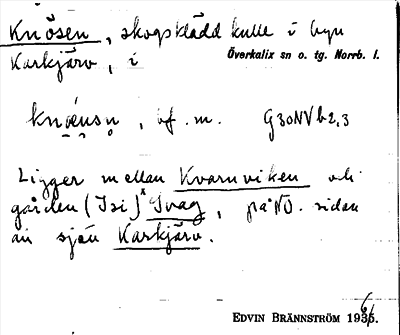 Knösen, skogsklädd kulle i byn
Karkjärv, i Överkalix sn o. tg. Norrb. l.
bf. m. G30NVb2,3
Ligger mellan Kvarnviken och
gården (Isi) Svag, på NO. sidan
av sjön Karkjärv.
EDVIN BRÄNNSTRÖM 1936.